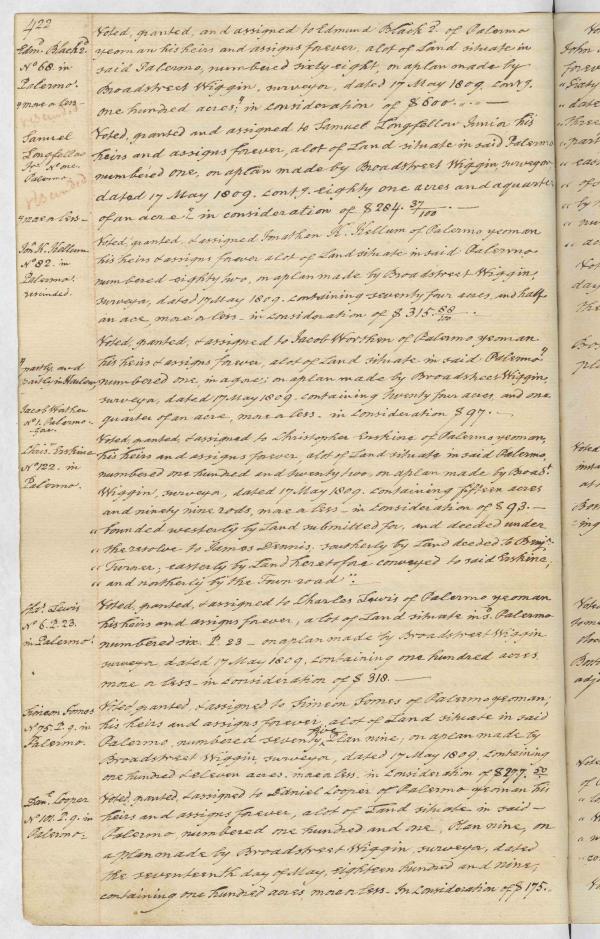 422
Voted, granted, and assigned to Edmund Black 2.d of Palermo
Edm.d Black 2.d
yeoman his heirs and assigns forever, a lot of Land situate in
No 68. in
said Palermo, numbered sixty eight, on a plan made by
Palermo.
Broadstreet Wiggin, surveyor, dated 17 May 1809. contg.
"more or less-
one hundred acres," in consideration of $600. . . —
rescinded
Voted, granted and assigned to Samuel Longfellow Junior his
Samuel
Longfellow
heirs and assigns forever, a lot of Land situate in said Palermo
Jr. No one.
numbered one, on a plan made by Broadstreet Wiggin, surveyor
Palermo
dated 17 May 1809. contg. eighty one acres and a quarter
rescinded
"more or less-
of an acre" in consideration of $284. 37/100 —
Jon. K. Kellum
Voted, granted, & assigned Jonathan K. Kellum of Palermo yeoman
No 82. in
his heirs & assigns forever a lot of Land situate in said Palermo
Palermo.
numbered eighty two, on a plan made by Broadstreet Wiggin,
rescinded.
surveyor, dated 17 May 1809. containing seventy four acres, and half
an acre, more or less - in consideration of $315. 88/100 —
Voted, granted, & assigned to Jacob Worthen of Palermo yeoman
"partly, and
his heirs & assigns forever, a lot of Land situate in said Palermo"
partly in Harlem,
numbered one, in a gore; on a plan made by Broadstreet Wiggin,
surveyor, dated 17 May 1809. containing twenty four acres, and one
Jacob Worthen
No 1. Palermo-
quarter of an acre, more or less - in consideration $97. . —
gore.
Chrisr. Erskine
Voted, granted, & assigned to Christopher Erskine of Palermo yeoman,
No 122. in
his heirs and assigns forever, a lot of Land situate in said Palermo,
Palermo.
numbered one hundred and twenty two, on a plan made by Broadst.
Wiggin, surveyor, dated 17 May 1809. containing fifteen acres
and ninety nine rods, more or less - in consideration of $93. —
" bounded westerly by Land submitted for, and deeded under
" the resolve to James Dennis; southerly by Land deeded to Benjn.
" Turner; easterly by Land heretofore conveyed to said Erskine;
" and northerly by the Town road".
Chos. Lewis
Voted, granted, & assigned to Charles Lewis of Palermo yeoman
No 6. P. 23.
his heirs and assigns forever, a lot of Land situate in sd. Palermo
in Palermo.
numbered six. P. 23 - on a plan made by Broadstreet Wiggin
surveyor, dated 17 May 1809. containing one hundred acres
more or less - in consideration of $318. —
Simeon Jones
Voted, granted, & assigned to Simeon Jones of Palermo yeoman;
No 75. P. 9. in
his heirs and assigns forever, a lot of Land situate in said
Palermo.
Palermo, numbered seventy five Plan nine; on a plan made by
Broadstreet Wiggin, surveyor, dated 17 May 1809. containing
one hundred & eleven acres. more or less, in consideration of $277. 50/100
Danl. Cooper
Voted, granted, & assigned to Daniel Cooper of Palermo yeoman his
No 101. P. 9. in
heirs and assigns forever, a lot of Land situate in said —
Palermo.
Palermo, numbered one hundred and one, Plan nine, on
a plan made by Broadstreet Wiggin, surveyor, dated
the seventeenth day of May, eighteen hundred and nine,
containing one hundred acres more or less. In consideration of $175. .